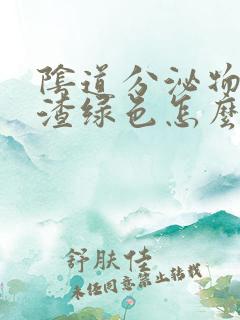 陰道分泌物
渣绿色怎麼
舒肤佳
未经同意禁止转载